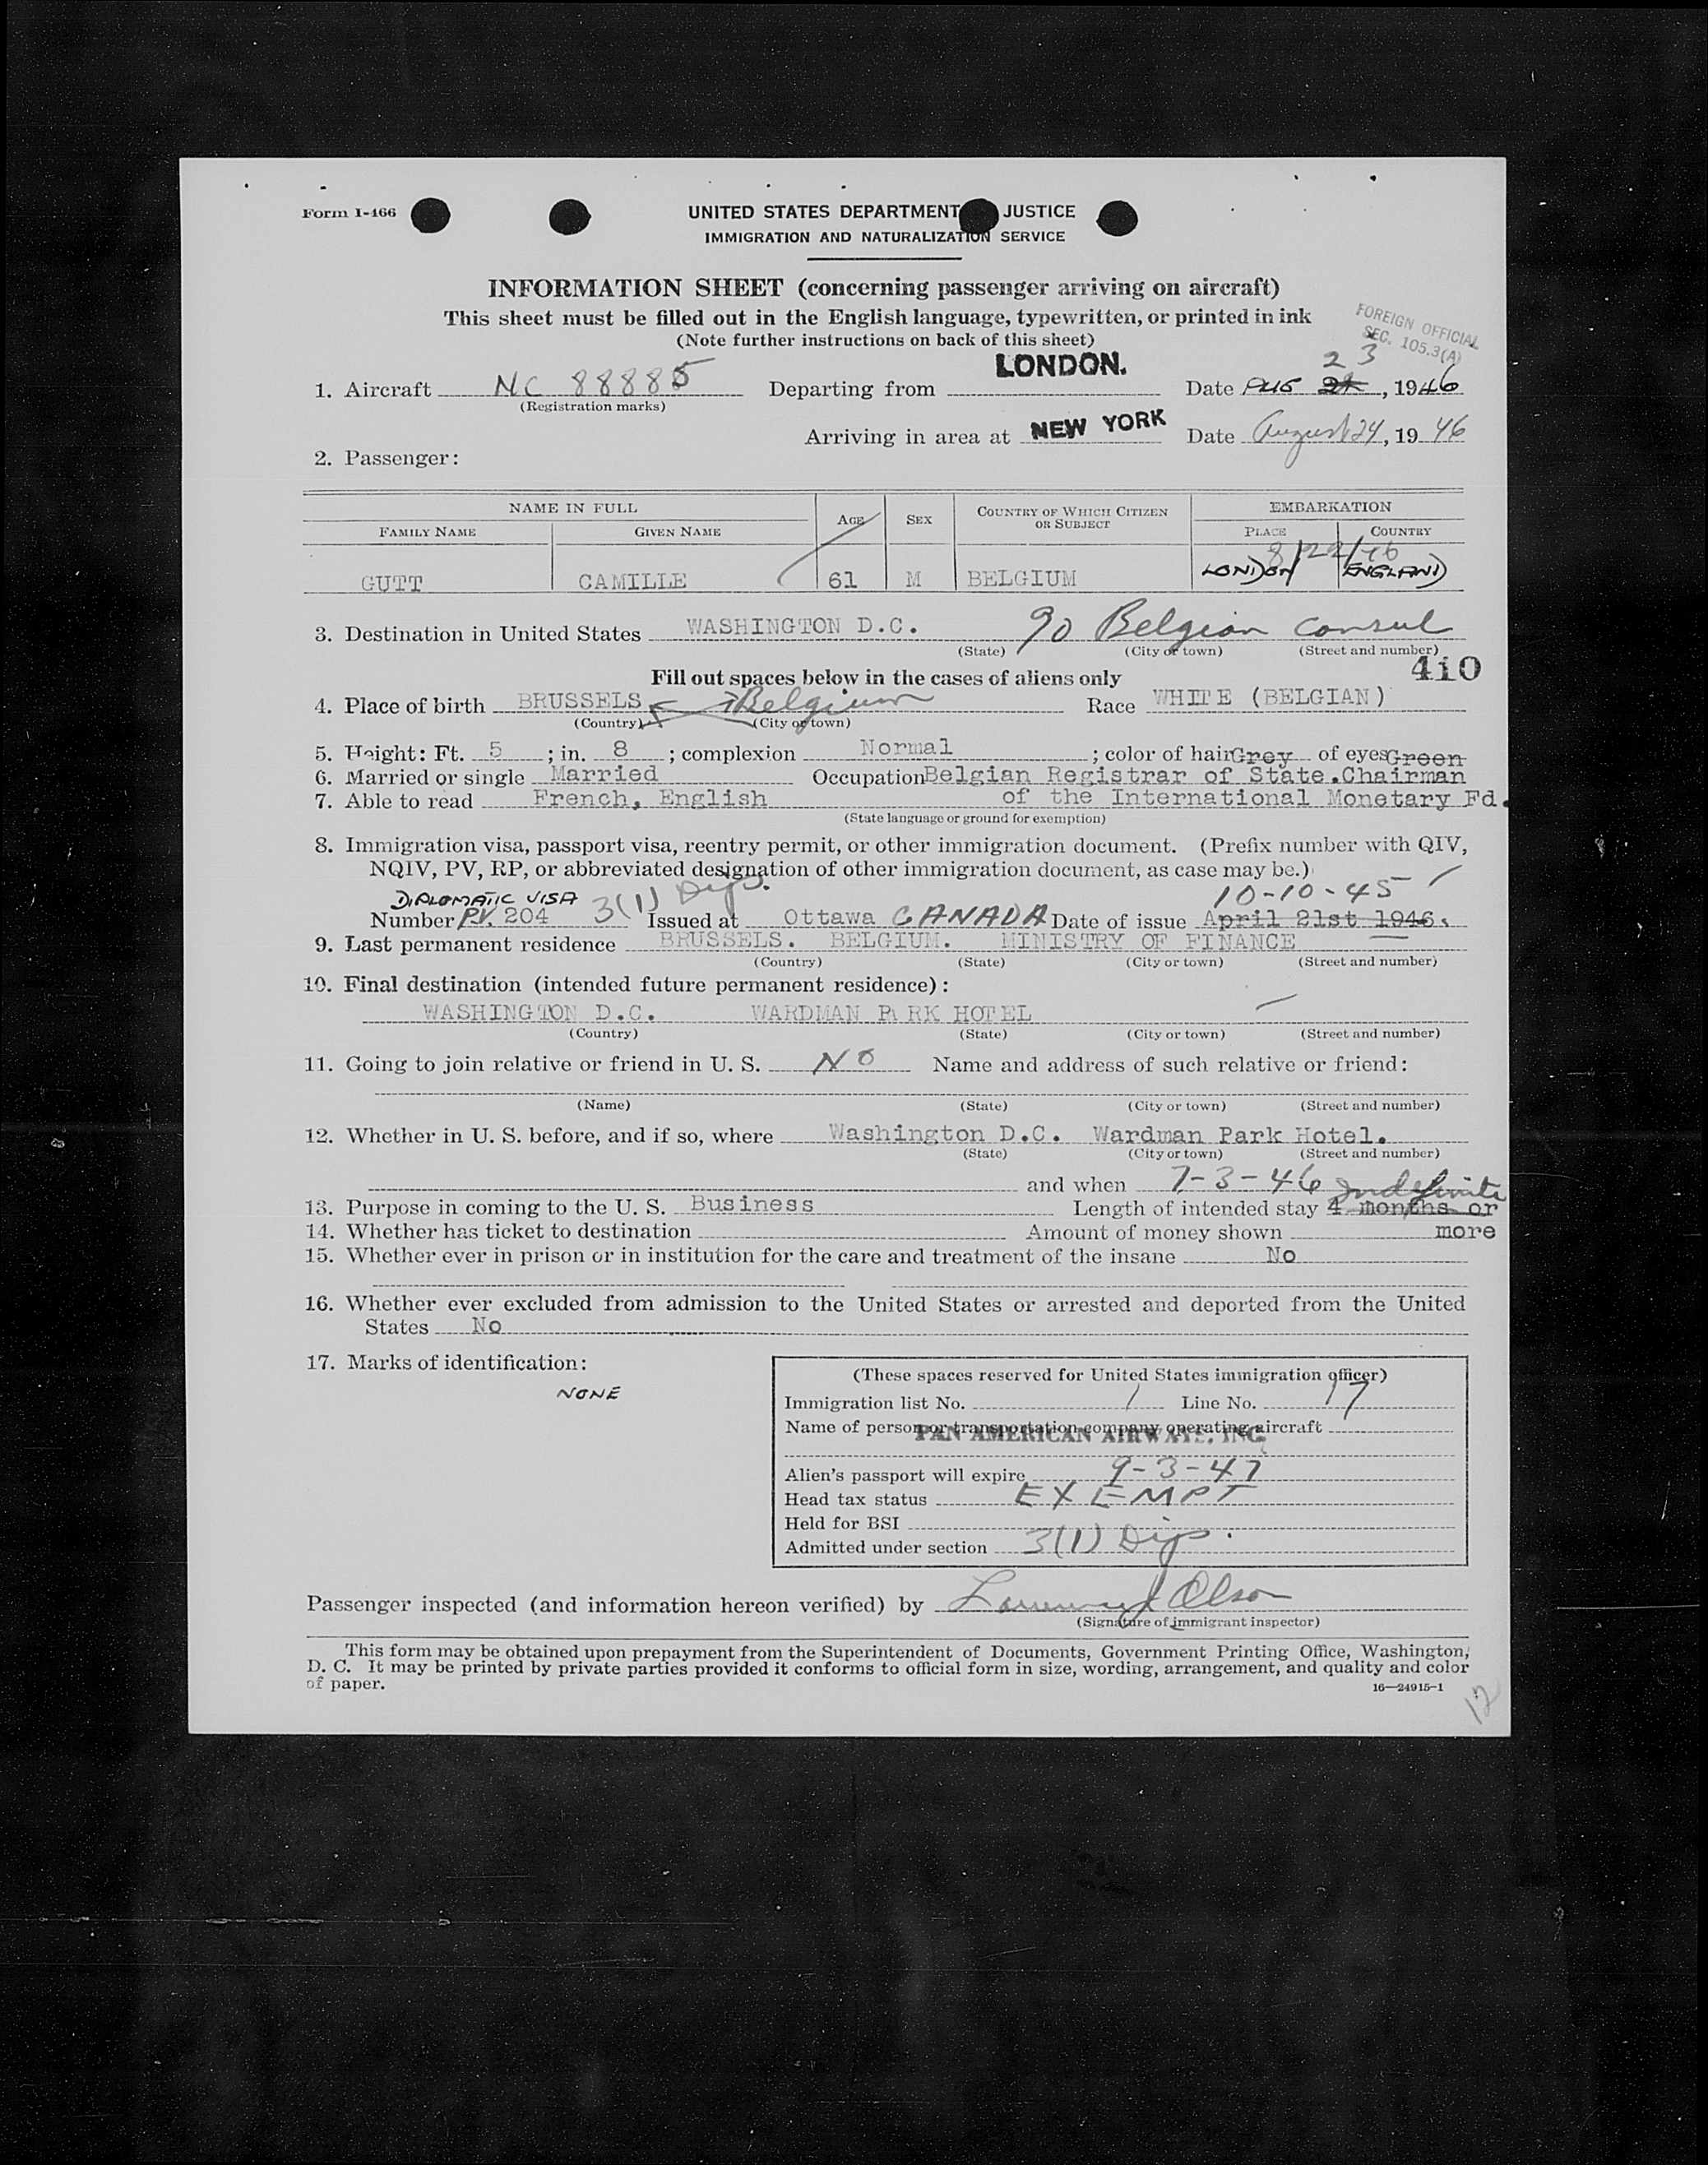 Form I-466
UNITED STATES DEPARTMENT JUSTICE
IMMIGRATION AND NATURALIZATION SERVICE
INFORMATION SHEET (concerning passenger arriving on aircraft)
This sheet must be filled out in the English language, typewritten, or printed in ink
(Note further instructions on back of this sheet)
FOREIGN OFFICIAL
SEC. 105.3(A)
1. Aircraft NC 88885 Departing from LONDON. Date AUG 23, 1946
(Registration marks)
Arriving in area at NEW YORK Date August 24, 19 46
2. Passenger:
NAME IN FULL AGE SEX COUNTRY OF WHICH CITIZEN OR SUBJECT EMBARKATION
FAMILY NAME GIVEN NAME PLACE COUNTRY
8/22/46
GUTT CAMILLE 61 M BELGIUM LONDON ENGLAND
3. Destination in United States WASHINGTON D.C. Belgian Consul
(State) (City or town) (Street and number)
410
Fill out spaces below in the cases of aliens only
4. Place of birth BRUSSELS Belgium Race WHITE (BELGIAN)
(Country) (City or town)
5. Height: Ft. 5 ; in. 8 ; complexion Normal ; color of hair Grey of eyes Green
6. Married or single Married Occupation Belgian Registrar of State. Chairman
7. Able to read French, English of the International Monetary Fd.
(State language or ground for exemption)
8. Immigration visa, passport visa, reentry permit, or other immigration document. (Prefix number with QIV,
NQIV, PV, RP, or abbreviated designation of other immigration document, as case may be.)
DIPLOMATIC VISA 3(1) Dip. 10-10-45
Number P.V. 204 Issued at Ottawa CANADA Date of issue April 21st 1946.
9. Last permanent residence BRUSSELS. BELGIUM. MINISTRY OF FINANCE
(Country) (State) (City or town) (Street and number)
10. Final destination (intended future permanent residence):
WASHINGTON D.C. WARDMAN PARK HOTEL
(Country) (State) (City or town) (Street and number)
11. Going to join relative or friend in U. S. NO Name and address of such relative or friend:
(Name) (State) (City or town) (Street and number)
12. Whether in U. S. before, and if so, where Washington D.C. Wardman Park Hotel.
(State) (City or town) (Street and number)
and when 7-3-46 Indefinite
13. Purpose in coming to the U. S. Business Length of intended stay 4 months or
14. Whether has ticket to destination Amount of money shown more
15. Whether ever in prison or in institution for the care and treatment of the insane No
16. Whether ever excluded from admission to the United States or arrested and deported from the United
States No
17. Marks of identification:
NONE
(These spaces reserved for United States immigration officer)
Immigration list No. 1 Line No. 17
Name of person or transportation company operating aircraft
PAN AMERICAN AIRWAYS, INC.
Alien's passport will expire 9-3-47
Head tax status EXEMPT
Held for BSI
Admitted under section 3(1) Dip.
Passenger inspected (and information hereon verified) by Olson
(Signature of immigrant inspector)
This form may be obtained upon prepayment from the Superintendent of Documents, Government Printing Office, Washington,
D. C. It may be printed by private parties provided it conforms to official form in size, wording, arrangement, and quality and color
of paper.
16—24915-1
12